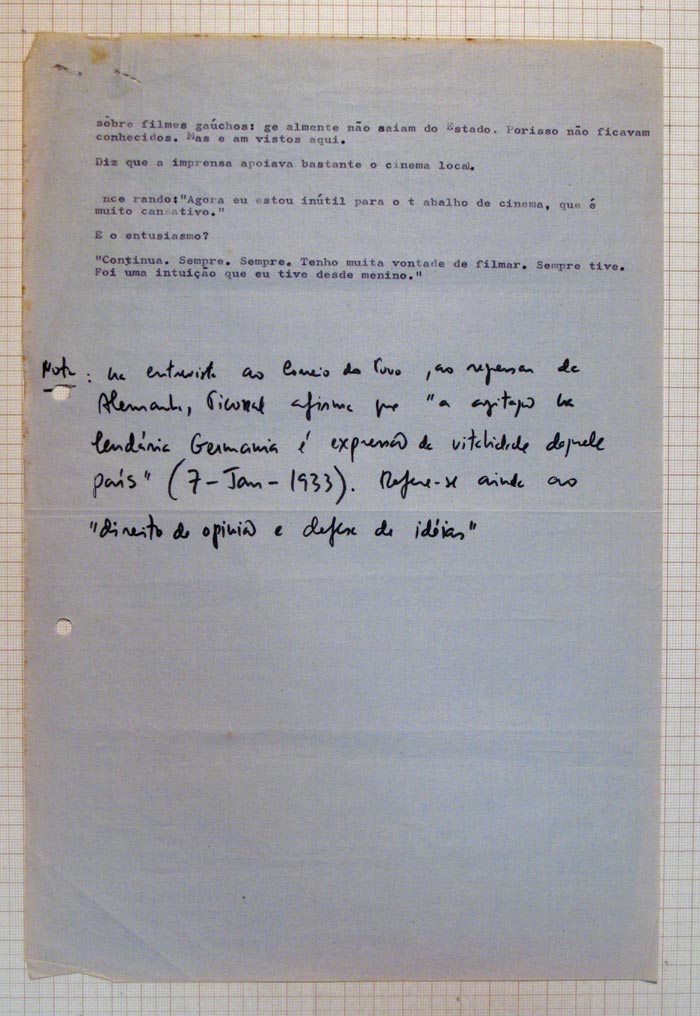 sôbre filmes gaúchos: ge almente não saiam do Estado. Porisso não ficavam
conhecidos. Mas e am vistos aqui.
Diz que a imprensa apoiava bastante o cinema local.
nce rando:"Agora eu estou inútil para o t abalho de cinema, que é
muito cansativo."
E o entusiasmo?
"Continua. Sempre. Sempre. Tenho muita vontade de filmar. Sempre tive.
Foi uma intuição que eu tive desde menino."
Nota: na entrevista ao Correio do Povo, ao regressar da
Alemanha, Picoral afirma que "a agitação na
lendária Germania é expressão da vitalidade daquele
país" (7-Jan-1933). Refere-se ainda ao
"direito de opinião e defesa de idéias"